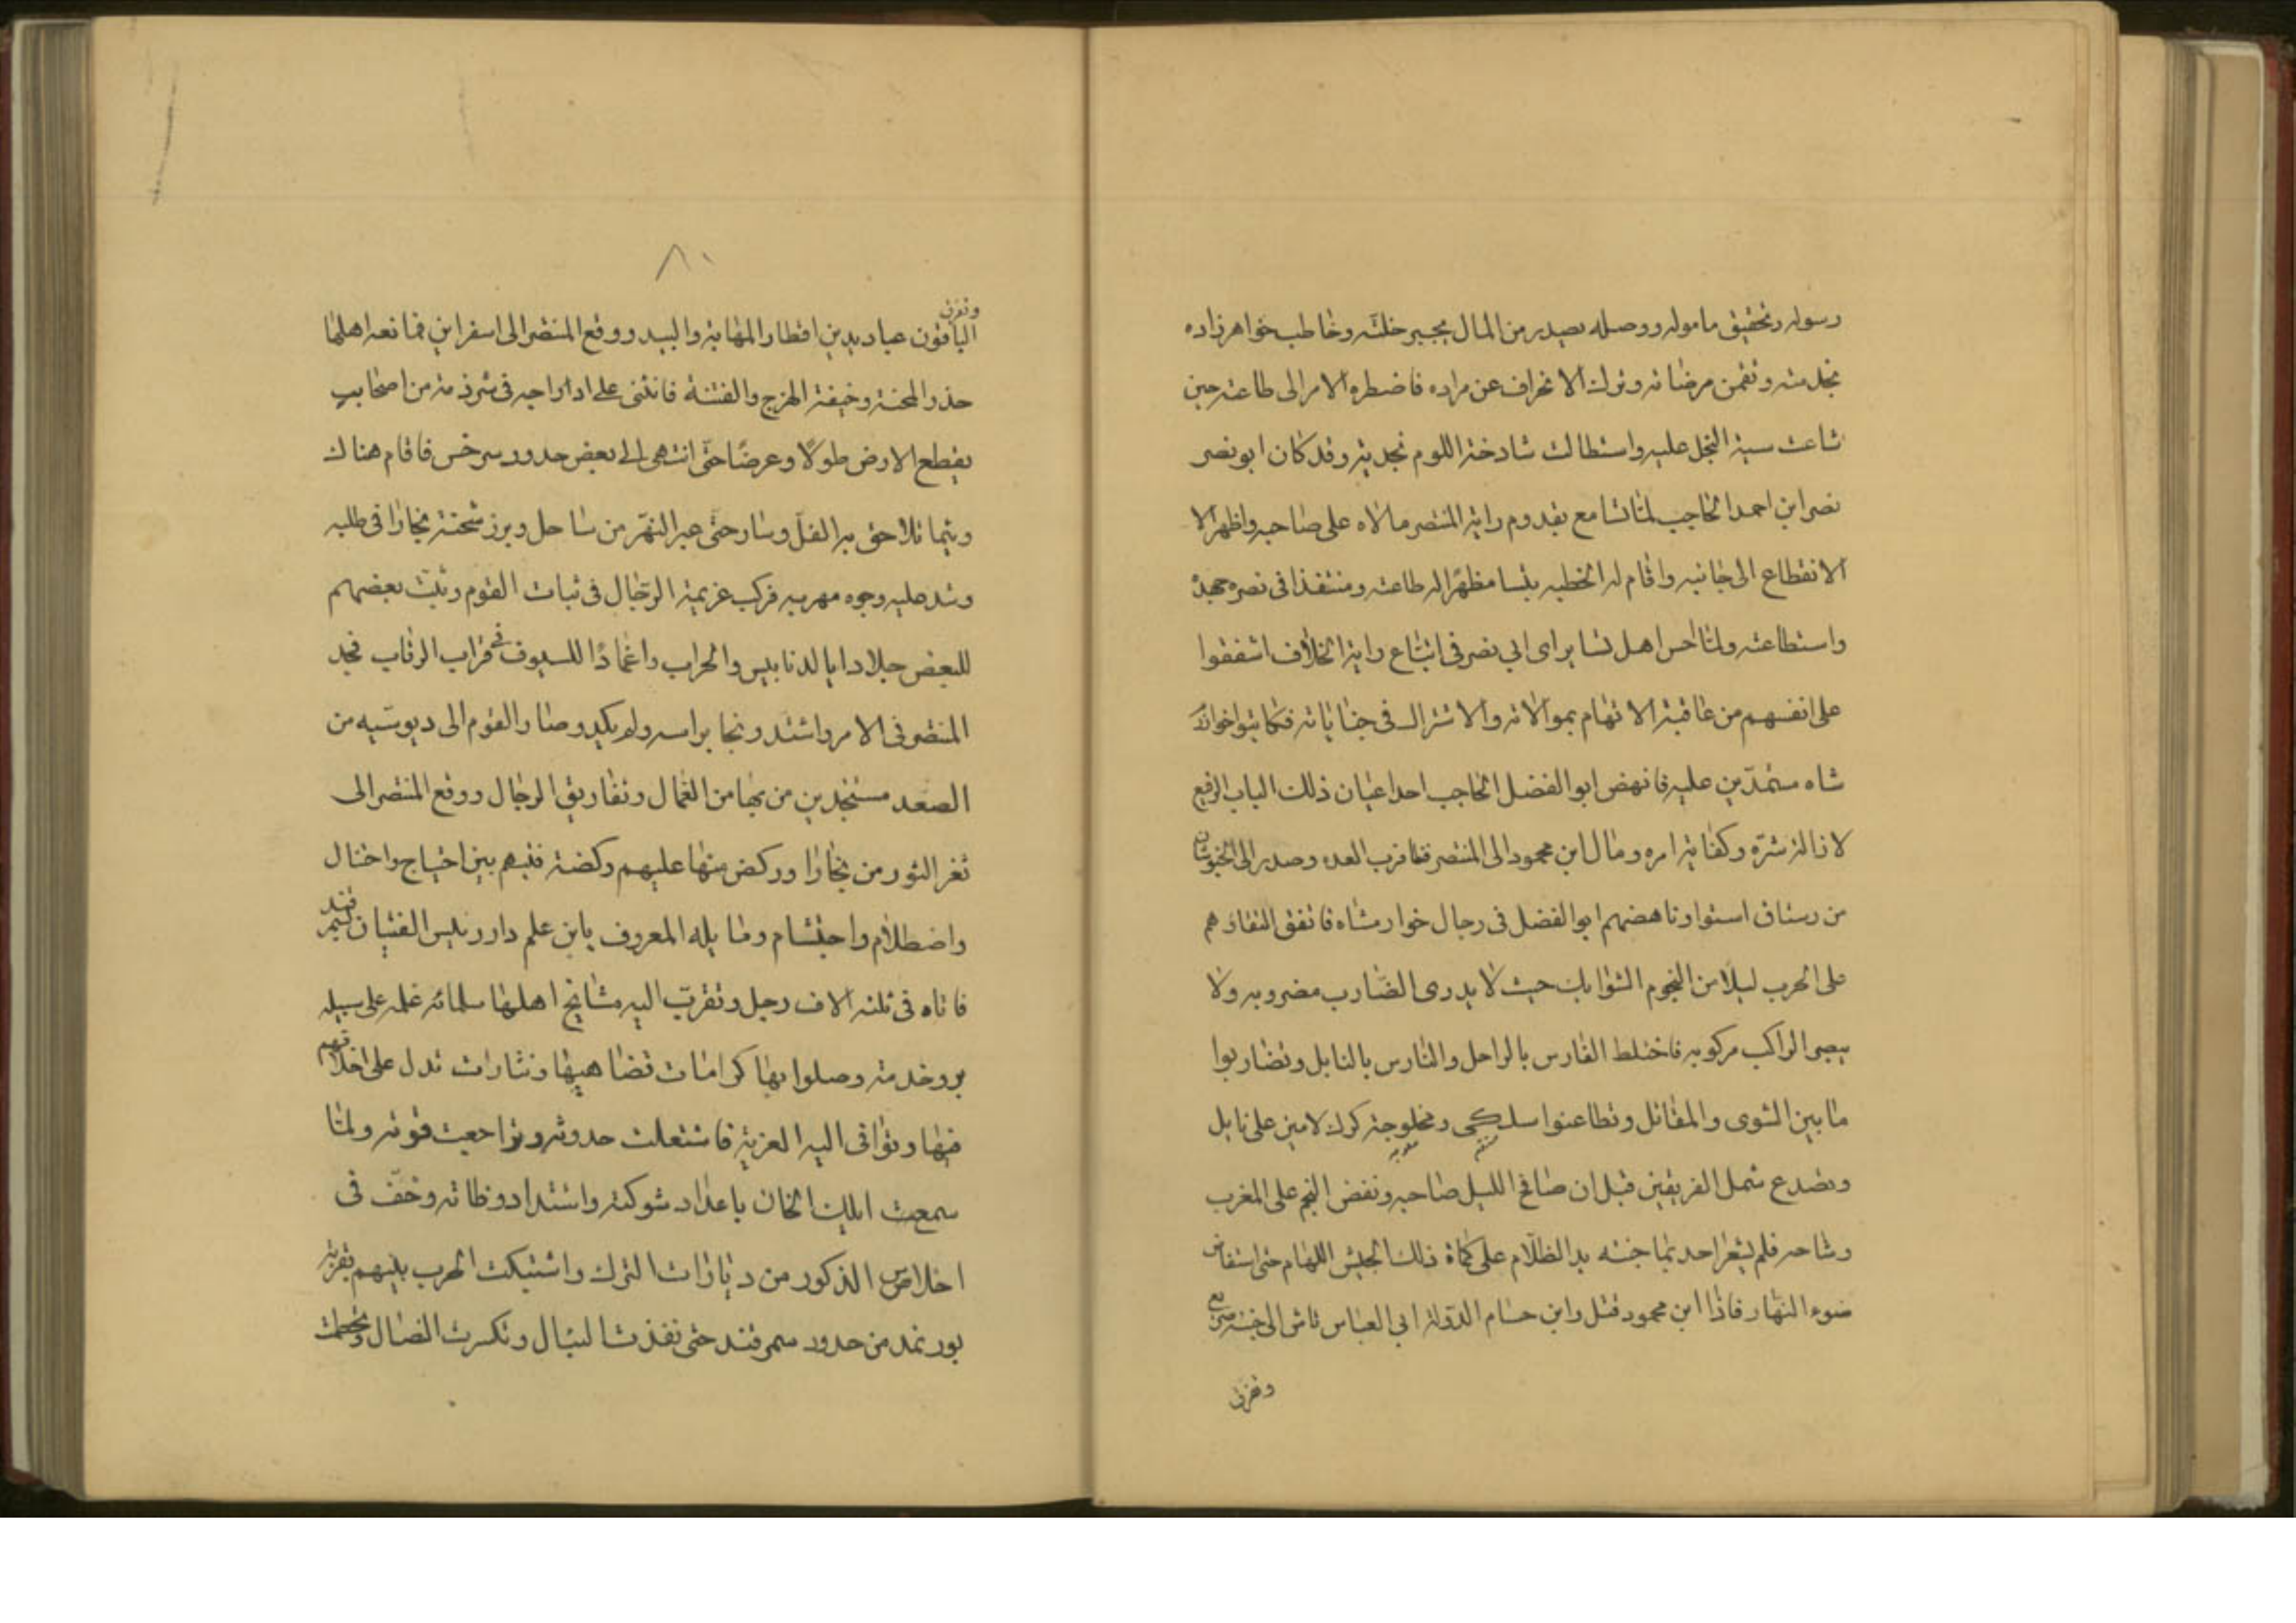 رسوله وتحقيق ماموله ووصله بصدر من المال يجبر خلته وخاطب خواهرزاده
بخدمته وتضمن مرضاته وترك الانحراف عن مراده فاضطره الامر الى طاعته حين
شاعت سبة البخل عليه واستطالت شادخة اللوم بجديه وقد كان ابو نصر
نصر ابن احمد الحاجب لما تسامع بقدوم راية المنتصر مالاه على صاحبه واظهر الا
الانقطاع الى جانبه واقام له الخطبه بنسا مظهرا له طاعته ومستنفذا فى نصره جهده
واستطاعته ولما احس اهل نسا براى ابي نصر فى اتباع راية الخلاف اشفقوا
على انفسهم من عاقبة الاتهام بموالاته والاشتراك فى جناياته فكاتبوا خوارزم
شاه مستمدين عليه فانهض ابو الفضل الحاجب احد اعيان ذلك الباب الرفيع
لازالة شره وكفاية امره ومال ابن محمود الى المنتصر فقارب العده وصدر الى الخبوشان
من رستاق استوا وناهضهم ابو الفضل فى رجال خوارمشاه فاتفق التقاؤهم
على الحرب ليلا من النجوم الثوابت حيث لا يدرى الضارب مضروبه ولا
يبصر الراكب مركوبه فاختلط الفارس بالراجل والتارس بالنابل وتضاربوا
ما بين الشوى والمقاتل وتطاعنوا سلكى ومخلوجة كرك لامين على نابل
وتصدع شمل الفريقين قبل ان صافح الليل صاحبه ونفض النجم على المغرب
وشاحه فلم يشعر احد بما جنته يد الظلام على كماة ذلك الجيش اللهام حتى استفاض
ضوء النهار فاذا ابن محمود قتل وابن حسام الدولة ابي العباس تاش الى جنبه صريع
وتفرق
٨٠
وتفرق
الباقون عباديد بين اقطار المهامة والبيد ووقع المنتصر الى اسفراين فمانعه اهلها
حذر المحنة وخيفة الهرج والفتنة فانثنى على ادراجه فى شرذمة من اصحابه
يقطع الارض طولا وعرضا حتى انتهى الى بعض حدود سرخس فاقام هناك
ريثما تلاحق به الفل وسار حتى عبر النهر من ساحل وبرز شحنة بخارا فى طلبه
وشد عليه وجوه مهربه فركب عزيمة الرجال فى ثبات القوم وثبت بعضهم
للبعض جلادا بالدنابيس والحراب واغمادا للسيوف فى قراب الرقاب فجد
المنتصر فى الامر واشتد ونجا براسه ولم يكد وصار القوم الى دبوسيه من
الصغد مستنجدين من بها من العمال وتفاريق الرجال ووقع المنتصر الى
ثغر النور من بخارا وركض منها عليهم ركضة فتبهم بين اجتياح واختال
واضطلام واحتشام ومايله المعروف بابن علم دار رئيس الفتيان بسمرقند
فاتاه فى ثلثه الاف رجل وتقرب اليه مشايخ اهلها سلمائه غلمه على سبيله
بر وخدمته وصلوا بها كرامات تضاهيها ونثارات تدل على اخلاقهم
فيها وتوافى اليه الغزية فاشتعلت حدوثه وتراجعت قوته ولما
سمعت ايلك الخان باعداد شوكته واشتداد وطاته وخف فى
اخلاص الذكور من ديارات الترك واشتبكت الحرب بينهم بقرية
بورنمد من حدود سمرقند حتى نفذت النبال وتكسرت النصال وتحطمت